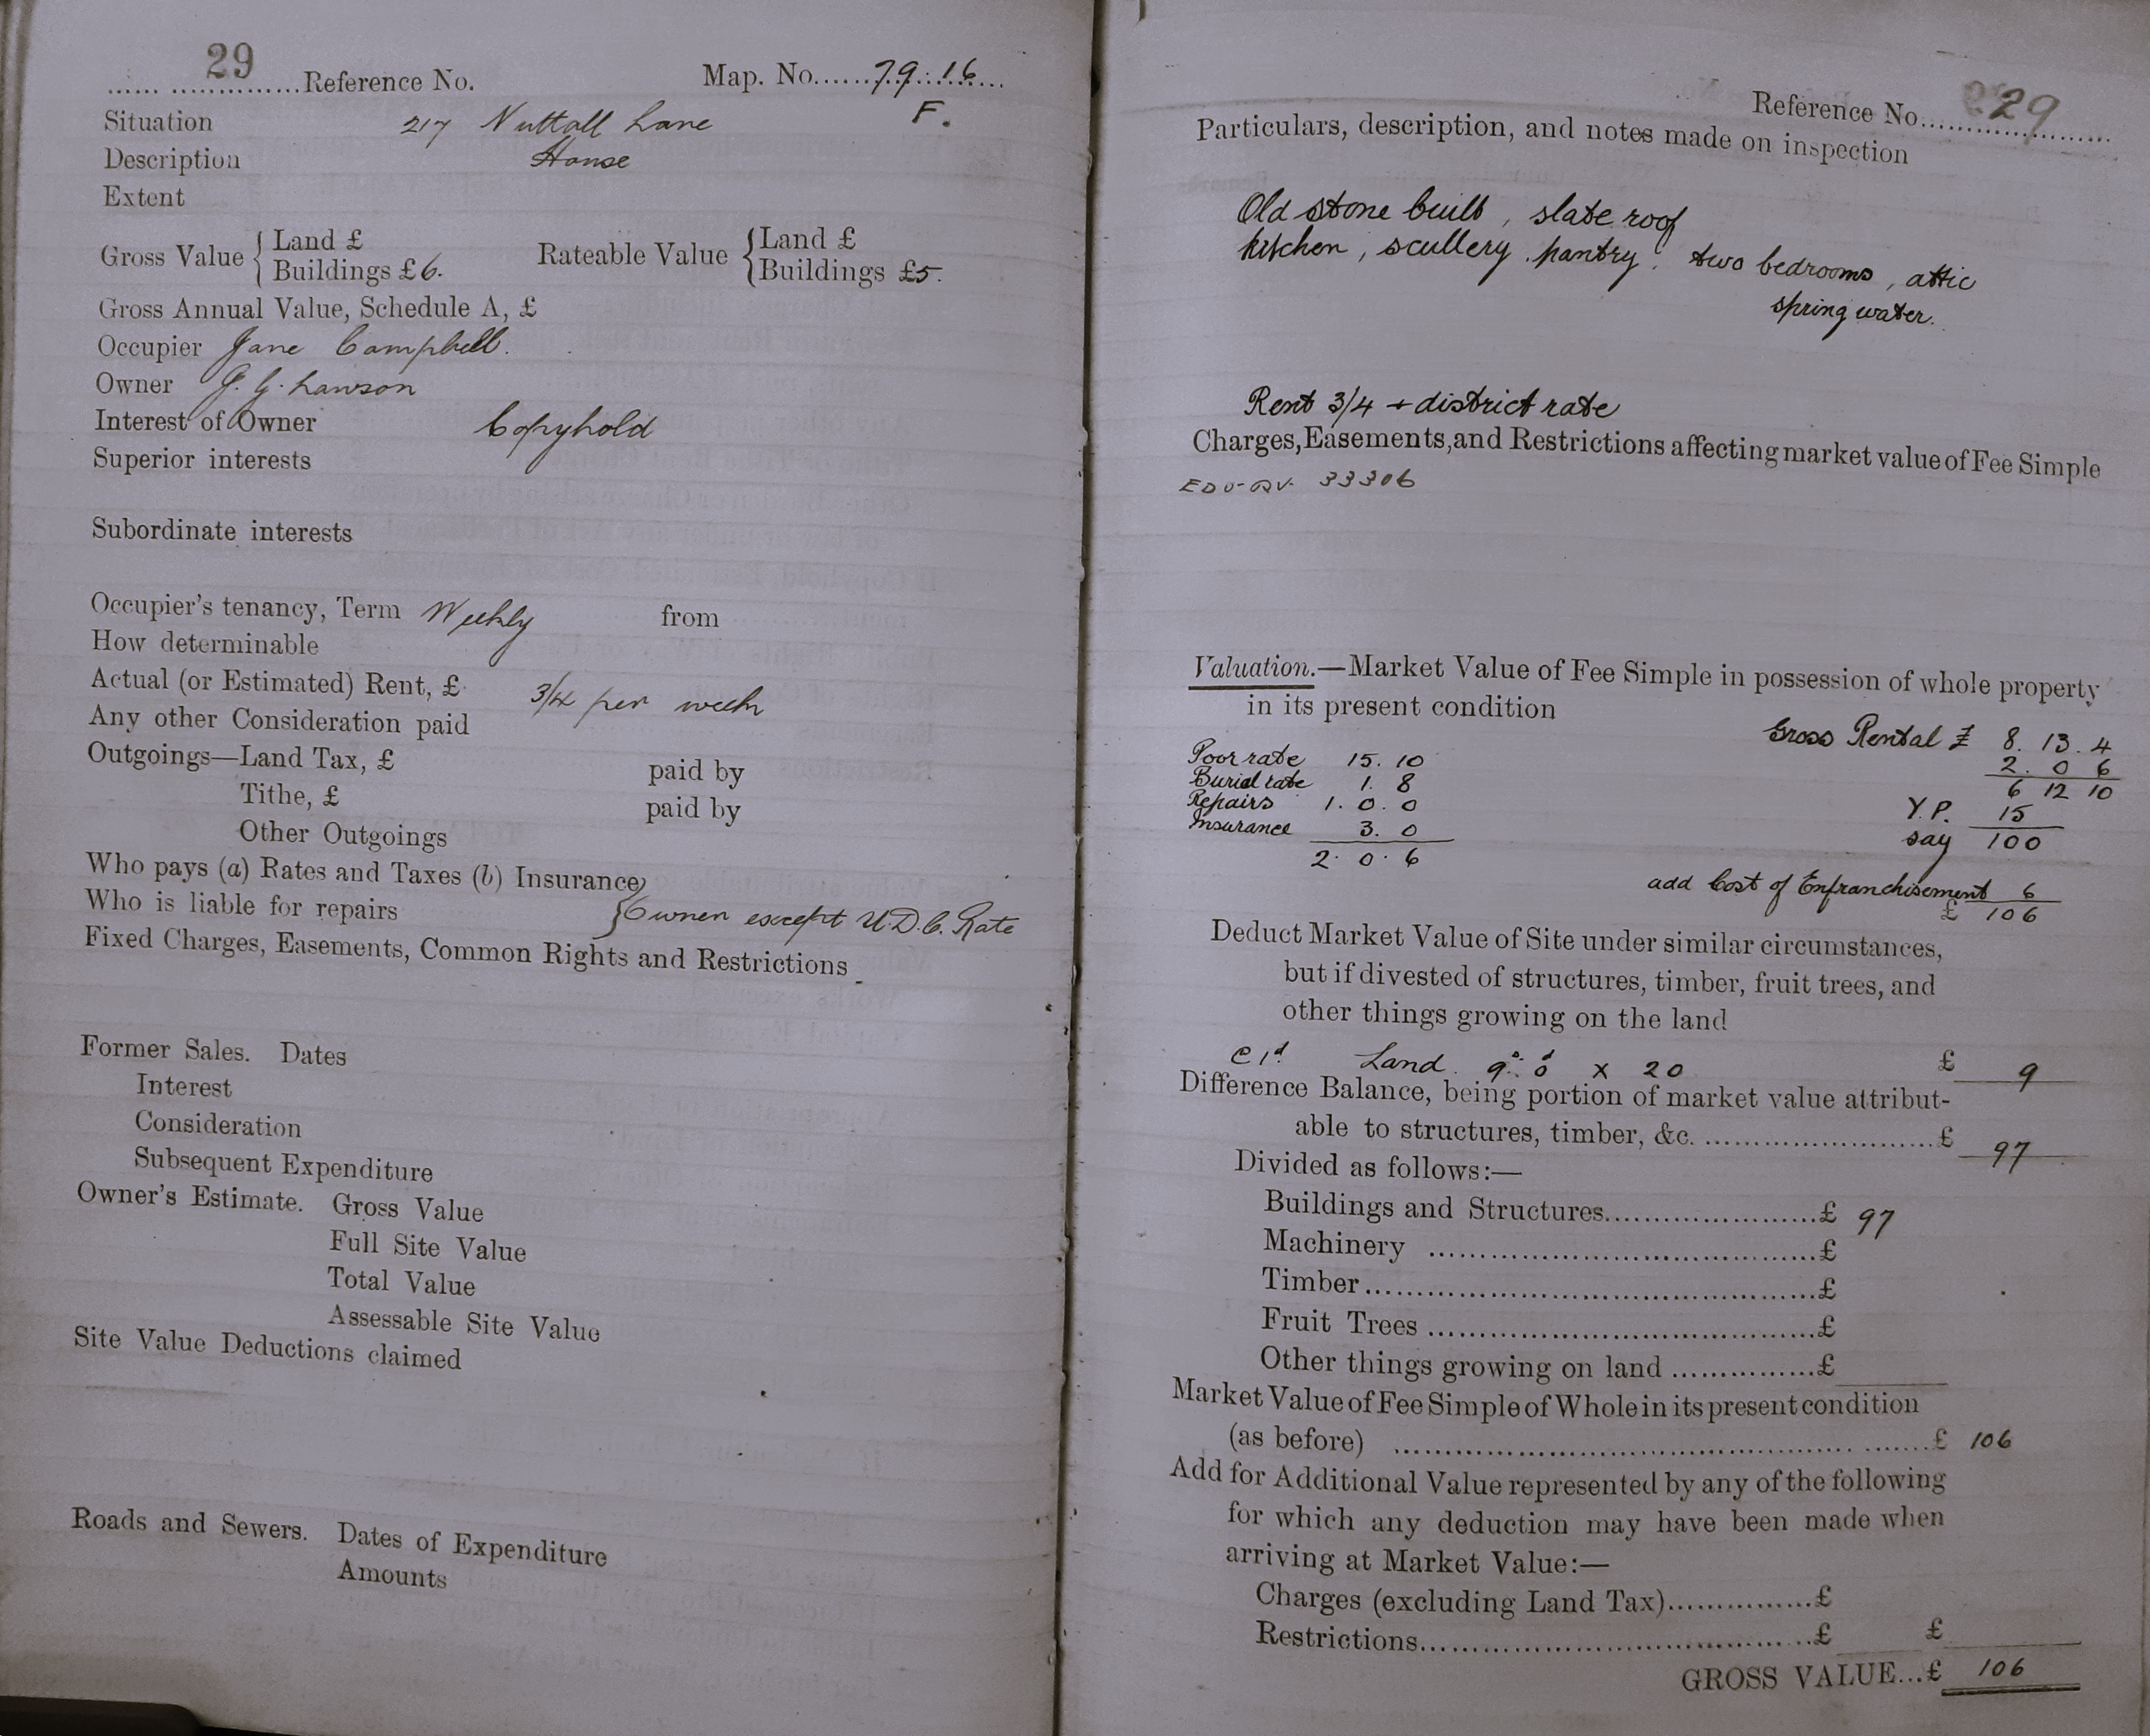 29 Reference No. Map. No. 79.16
Situation 217 Nuttall Lane F.
Description House
Extent
Gross Value { Land £
Buildings £6.
Rateable Value { Land £
Buildings £5.
Gross Annual Value, Schedule A, £
Occupier Jane Campbell.
Owner J. G. Lawson
Interest of Owner Copyhold
Superior interests
Subordinate interests
Occupier's tenancy, Term Weekly from
How determinable
Actual (or Estimated) Rent, £ 3/4 per week
Any other Consideration paid
Outgoings—Land Tax, £ paid by
Tithe, £ paid by
Other Outgoings
Who pays (a) Rates and Taxes (b) Insurance
Who is liable for repairs } Owner except U.D.C. Rate
Fixed Charges, Easements, Common Rights and Restrictions
Former Sales. Dates
Interest
Consideration
Subsequent Expenditure
Owner's Estimate. Gross Value
Full Site Value
Total Value
Assessable Site Value
Site Value Deductions claimed
Roads and Sewers. Dates of Expenditure
Amounts
Reference No. 29
Particulars, description, and notes made on inspection
Old stone built, slate roof
kitchen, scullery, pantry, two bedrooms, attic
spring water.
Rent 3/4 + district rate
Charges, Easements, and Restrictions affecting market value of Fee Simple
33306
Valuation.—Market Value of Fee Simple in possession of whole property
in its present condition
Gross Rental £ 8. 13. 4
Poor rate 15. 10 2. 0 6
Burial rate 1. 8 6 12 10
Repairs 1. 0. 0 Y.P. 15
Insurance 3. 0 say 100
2. 0. 6
add Cost of Enfranchisement 6
£ 106
Deduct Market Value of Site under similar circumstances,
but if divested of structures, timber, fruit trees, and
other things growing on the land
C 1d Land. 9s. 0d x 20 £ 9
Difference Balance, being portion of market value attribut-
able to structures, timber, &c. £ 97
Divided as follows:—
Buildings and Structures £ 97
Machinery £
Timber £
Fruit Trees £
Other things growing on land £
Market Value of Fee Simple of Whole in its present condition
(as before) £ 106
Add for Additional Value represented by any of the following
for which any deduction may have been made when
arriving at Market Value:—
Charges (excluding Land Tax) £
Restrictions £ £
GROSS VALUE...£ 106